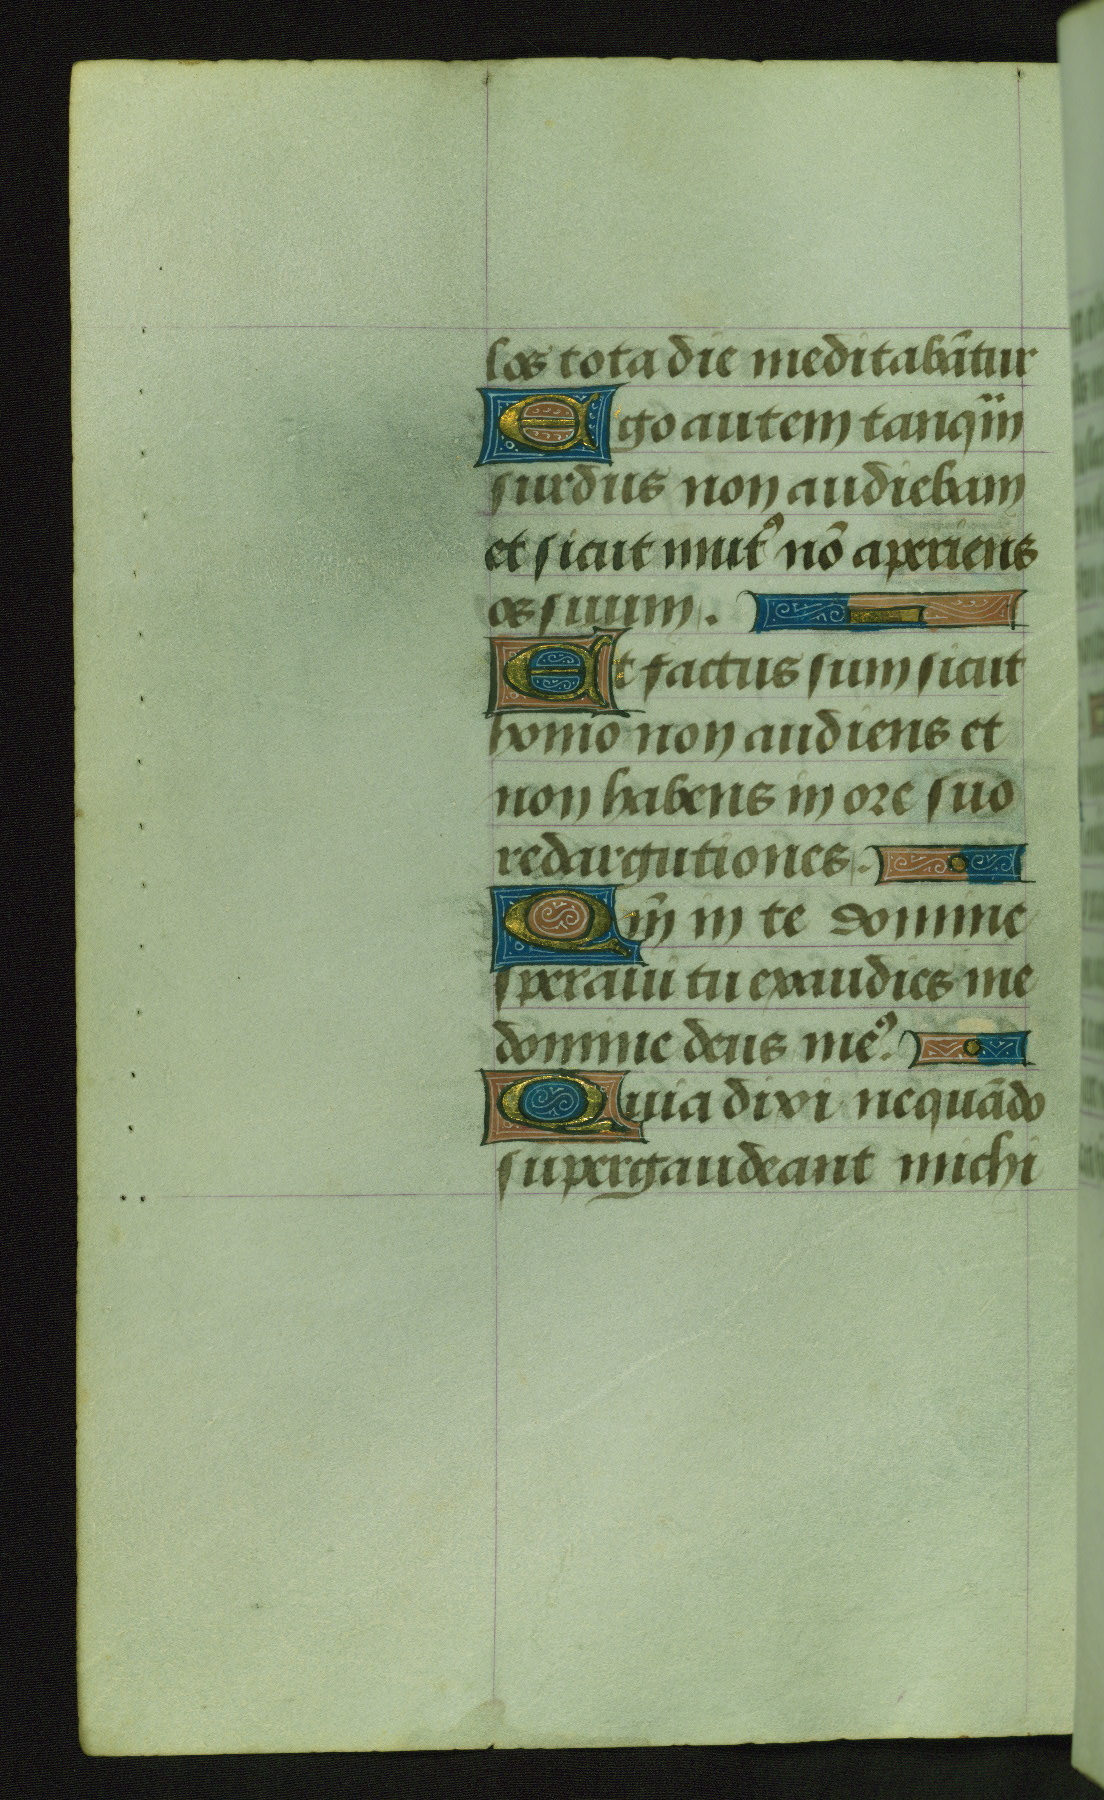 los tota die meditabãtur
Ego autem tanqͫ
surdus non audiebam
et sicut mutꝰ nõ aperiens
os suum.
Et factus sum sicut
homo non audiens et
non habens in ore suo
redargutiones.
Qm̃ in te domine
speraui tu exaudies me
domine deus meꝰ.
Quia dixi nequãdo
supergaudeant michi